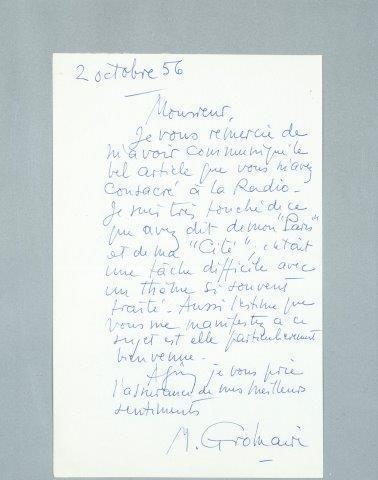 2 octobre 56
Monsieur,
Je vous remercie de
m'avoir communiqué le
bel article que vous m'avez
consacré à la Radio -
Je suis très touché de ce
que avez dit de mon "Paris"
et de ma "Cité", c'était
une tâche difficile avec
un thème si souvent
traité - Aussi l'estime que
vous me manifestez à ce
sujet est elle particulièrement
bienvenue -
je vous prie
l'assurance de mes meilleurs
sentiments
M. Gromaire